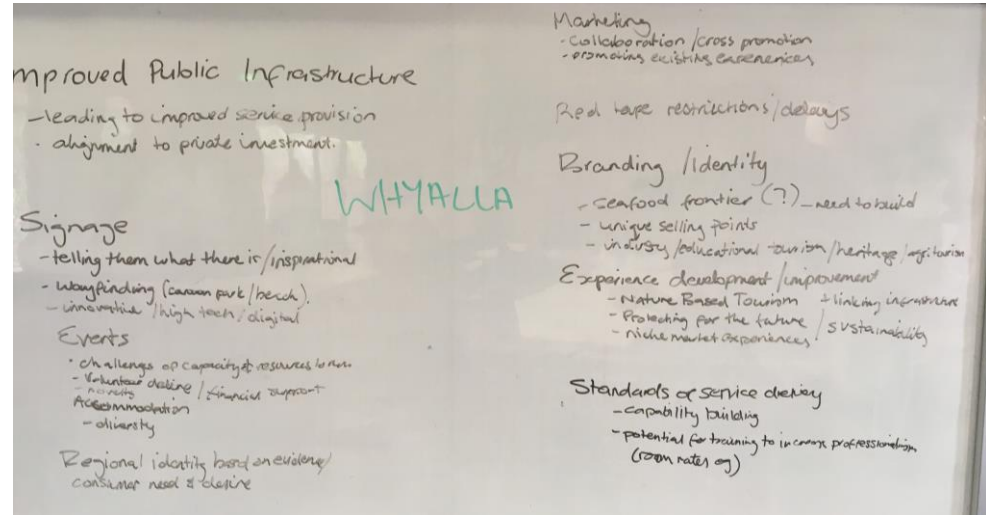 mproved Public Infrastructure
- leading to improved service provision
· alignment to private investment.
WHYALLA
Signage
- telling them what there is / inspirational
- wayfinding (caravan park / beach).
- innovative / high tech / digital
Events
· challenges of capacity & resources to run
- Volunteer decline / financial support
- novelty
Accommodation
- diversity
Regional identity based on evidence /
consumer need & desire
Marketing
- collaboration / cross promotion
- promoting existing experiences
Red tape restrictions / delays
Branding / Identity
- seafood frontier (?) - need to build
- unique selling points
- industry / educational tourism / heritage / agritourism
Experience development / improvement
- Nature Based Tourism + linking infrastructure
- Protecting for the future / sustainability
- niche market experiences.
Standards of service delivery
- capability building
- potential for training to increase professionalism
(room rates eg)